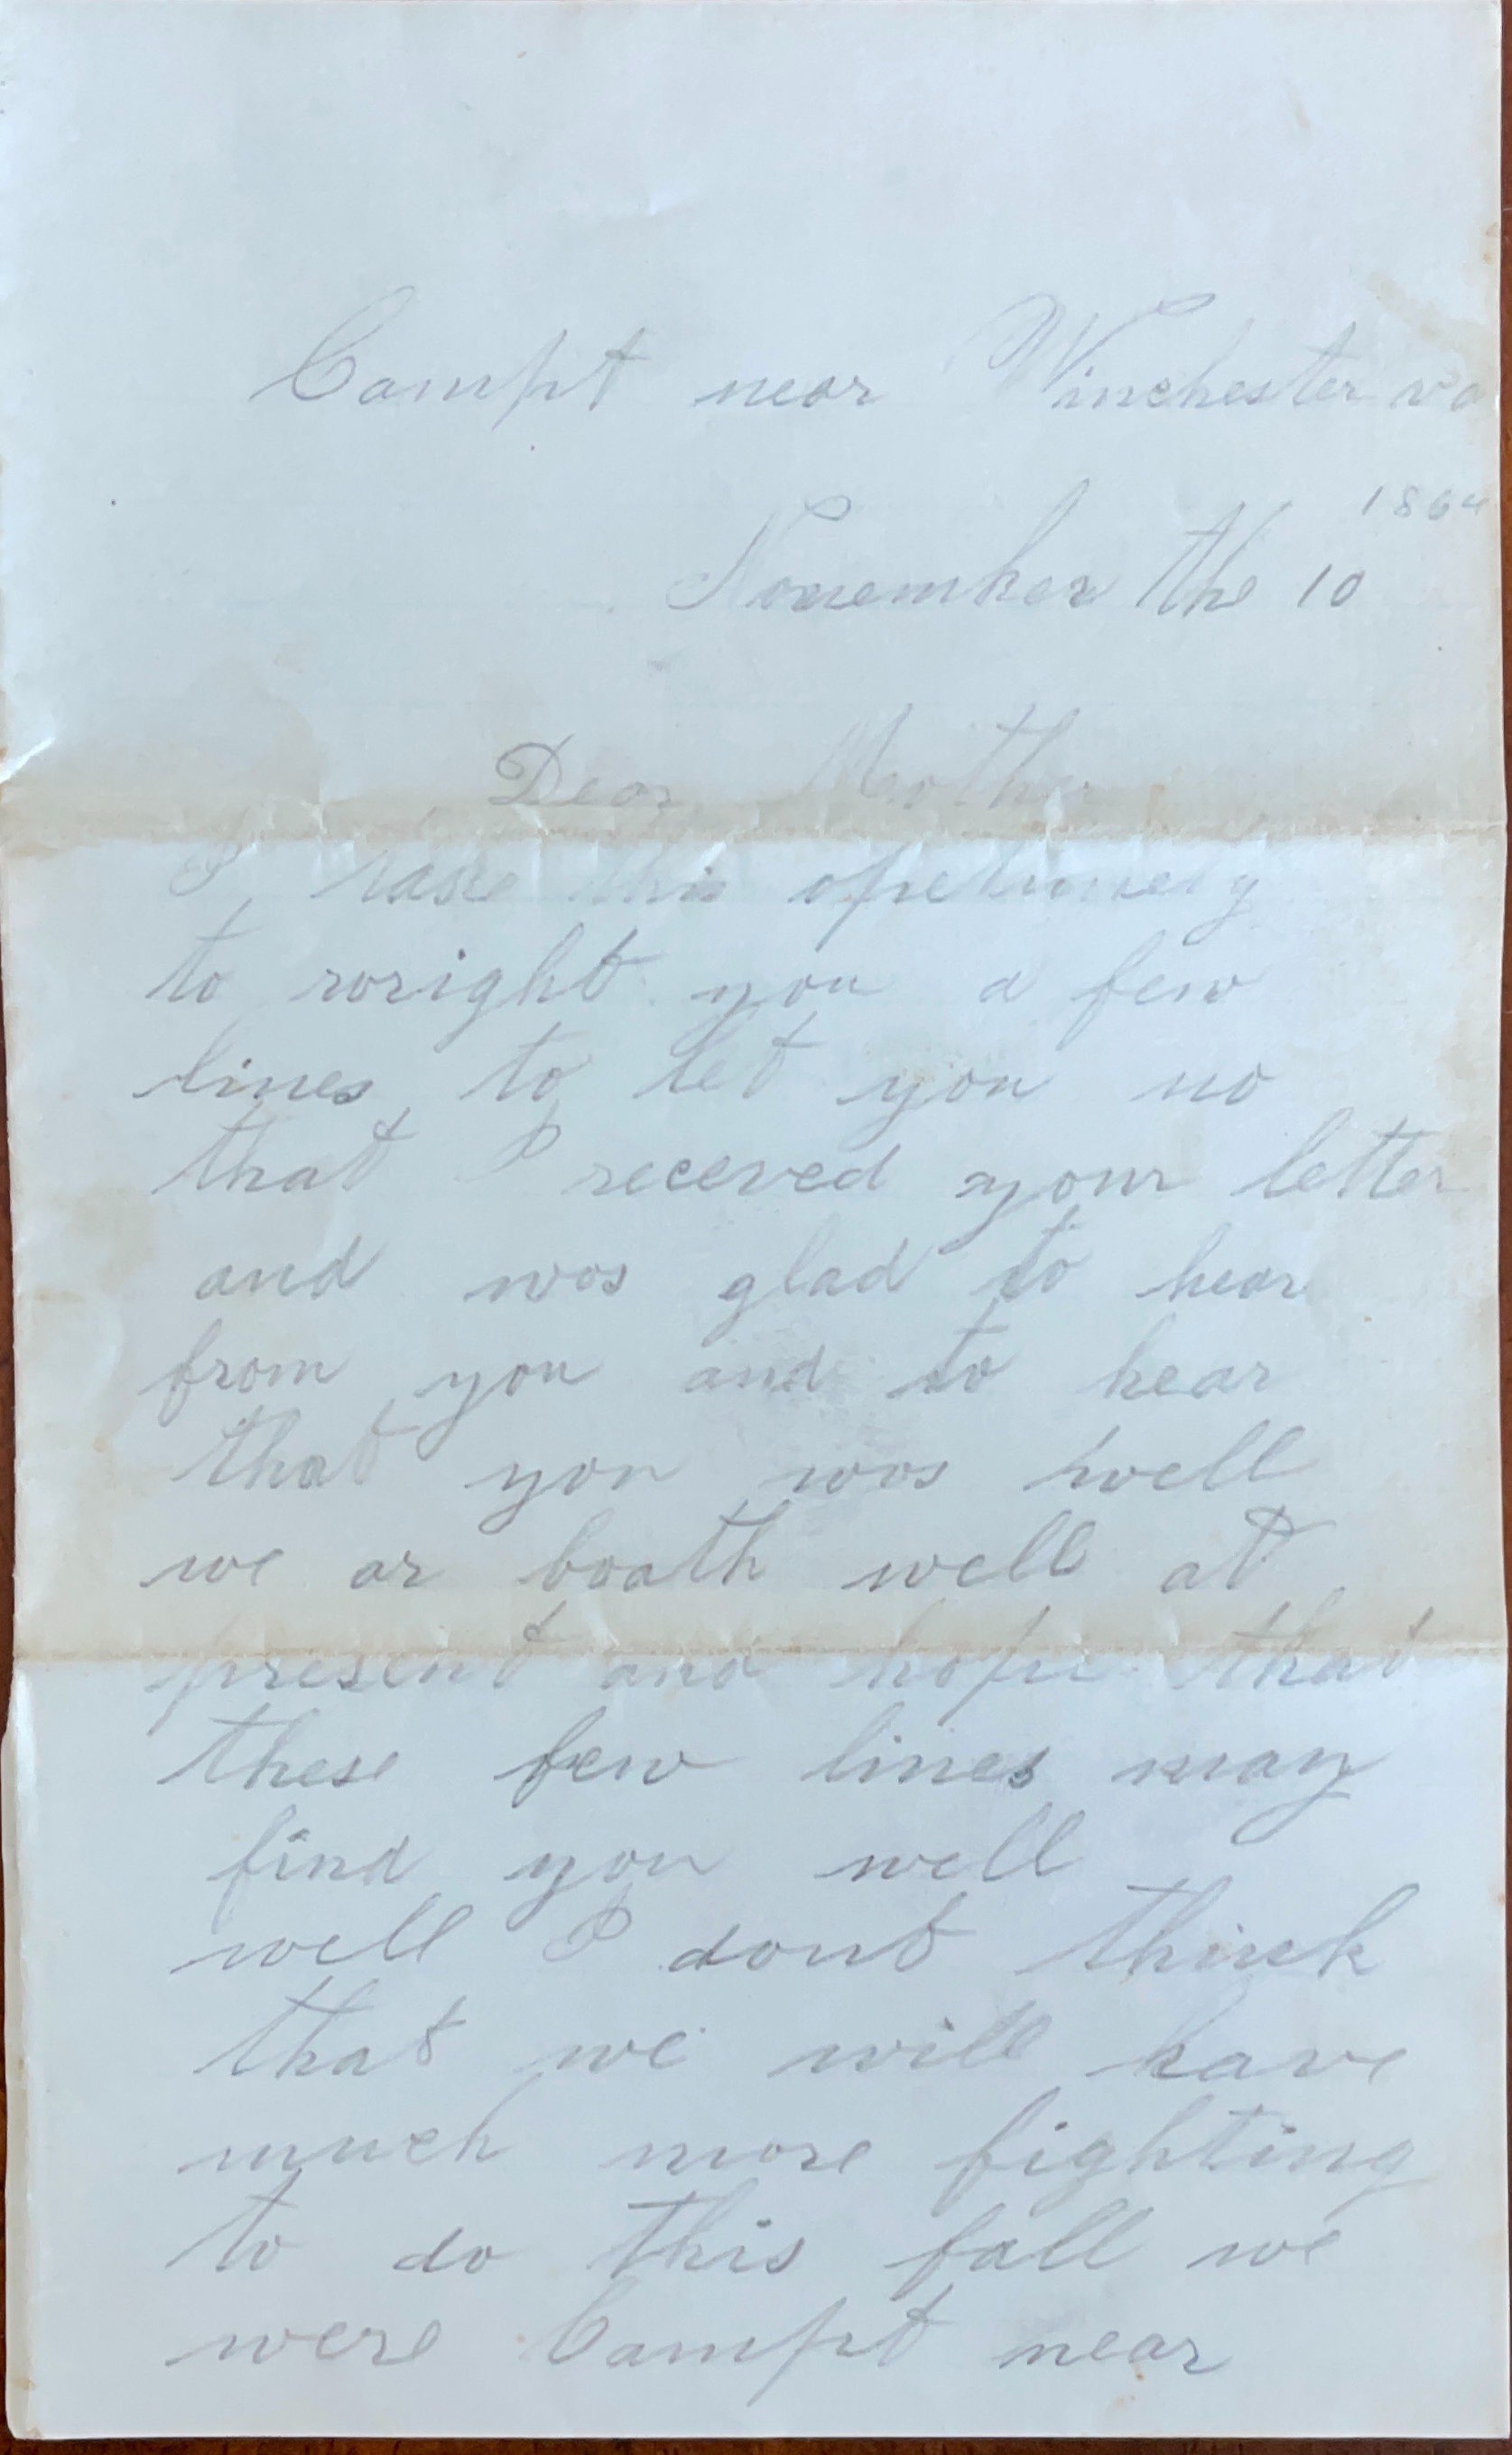 Campt near Winchester va
1864
November the 10
Dear Mother
I take this opetunety
to wright you a few
lines to let you no
that I receved your letter
and was glad to hear
from you and to hear
that you was well
we ar boath well at
present and hope that
these few lines may
find you well
well I dont think
that we will have
much more fighting
to do this fall we
were Campt near